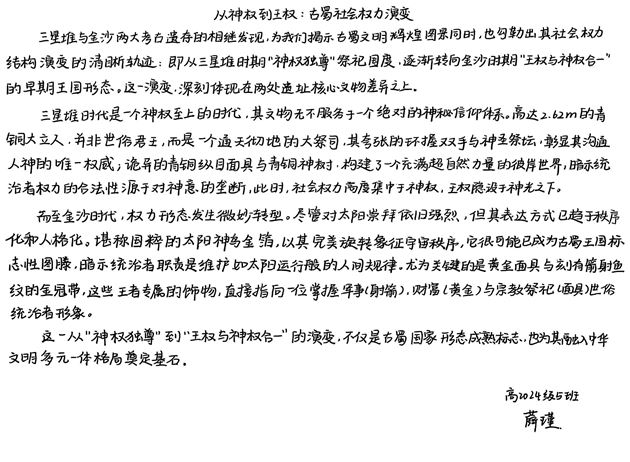 从神权到王权：古蜀社会权力演变
三星堆与金沙两大考古遗存的相继发现，为我们揭示古蜀文明辉煌图景同时，也勾勒出其社会权力
结构演变的清晰轨迹：即从三星堆时期"神权独尊"祭祀国度，逐渐转向金沙时期"王权与神权合一"
的早期王国形态。这一演变，深刻体现在两处遗址核心文物差异之上。
三星堆时代是一个神权至上的时代，其文物无不服务于一个绝对的神秘信仰体系。高达2.62m的青
铜大立人，并非世俗君王，而是一个通天彻地的大祭司，其夸张的环握双手与神圣祭坛，彰显其沟通
人神的唯一权威；诡异的青铜纵目面具与青铜神树，构建了一个充满超自然力量的彼岸世界，暗示统
治者权力的合法性源于对神意的垄断，此时，社会权力高度集中于神权，王权隐设于神光之下。
而至金沙时代，权力形态发生微妙转型。尽管对太阳崇拜依旧强烈，但其表达方式已趋于秩序
化和人格化。堪称国粹的太阳神鸟金箔，以其完美旋转象征宇宙秩序，它很可能已成为古蜀王国标
志性图腾，暗示统治者职责是维护如太阳运行般的人间规律。尤为关键的是黄金面具与刻有箭射鱼
纹的金冠带，这些王者专属的饰物，直接指向一位掌握军事(射箭)，财富(黄金)与宗教祭祀(面具)世俗
统治者形象。
这一从"神权独尊"到"王权与神权合一"的演变，不仅是古蜀国家形态成熟标志，也为其融入中华
文明多元一体格局奠定基石。
高2024级5班
薛瑾